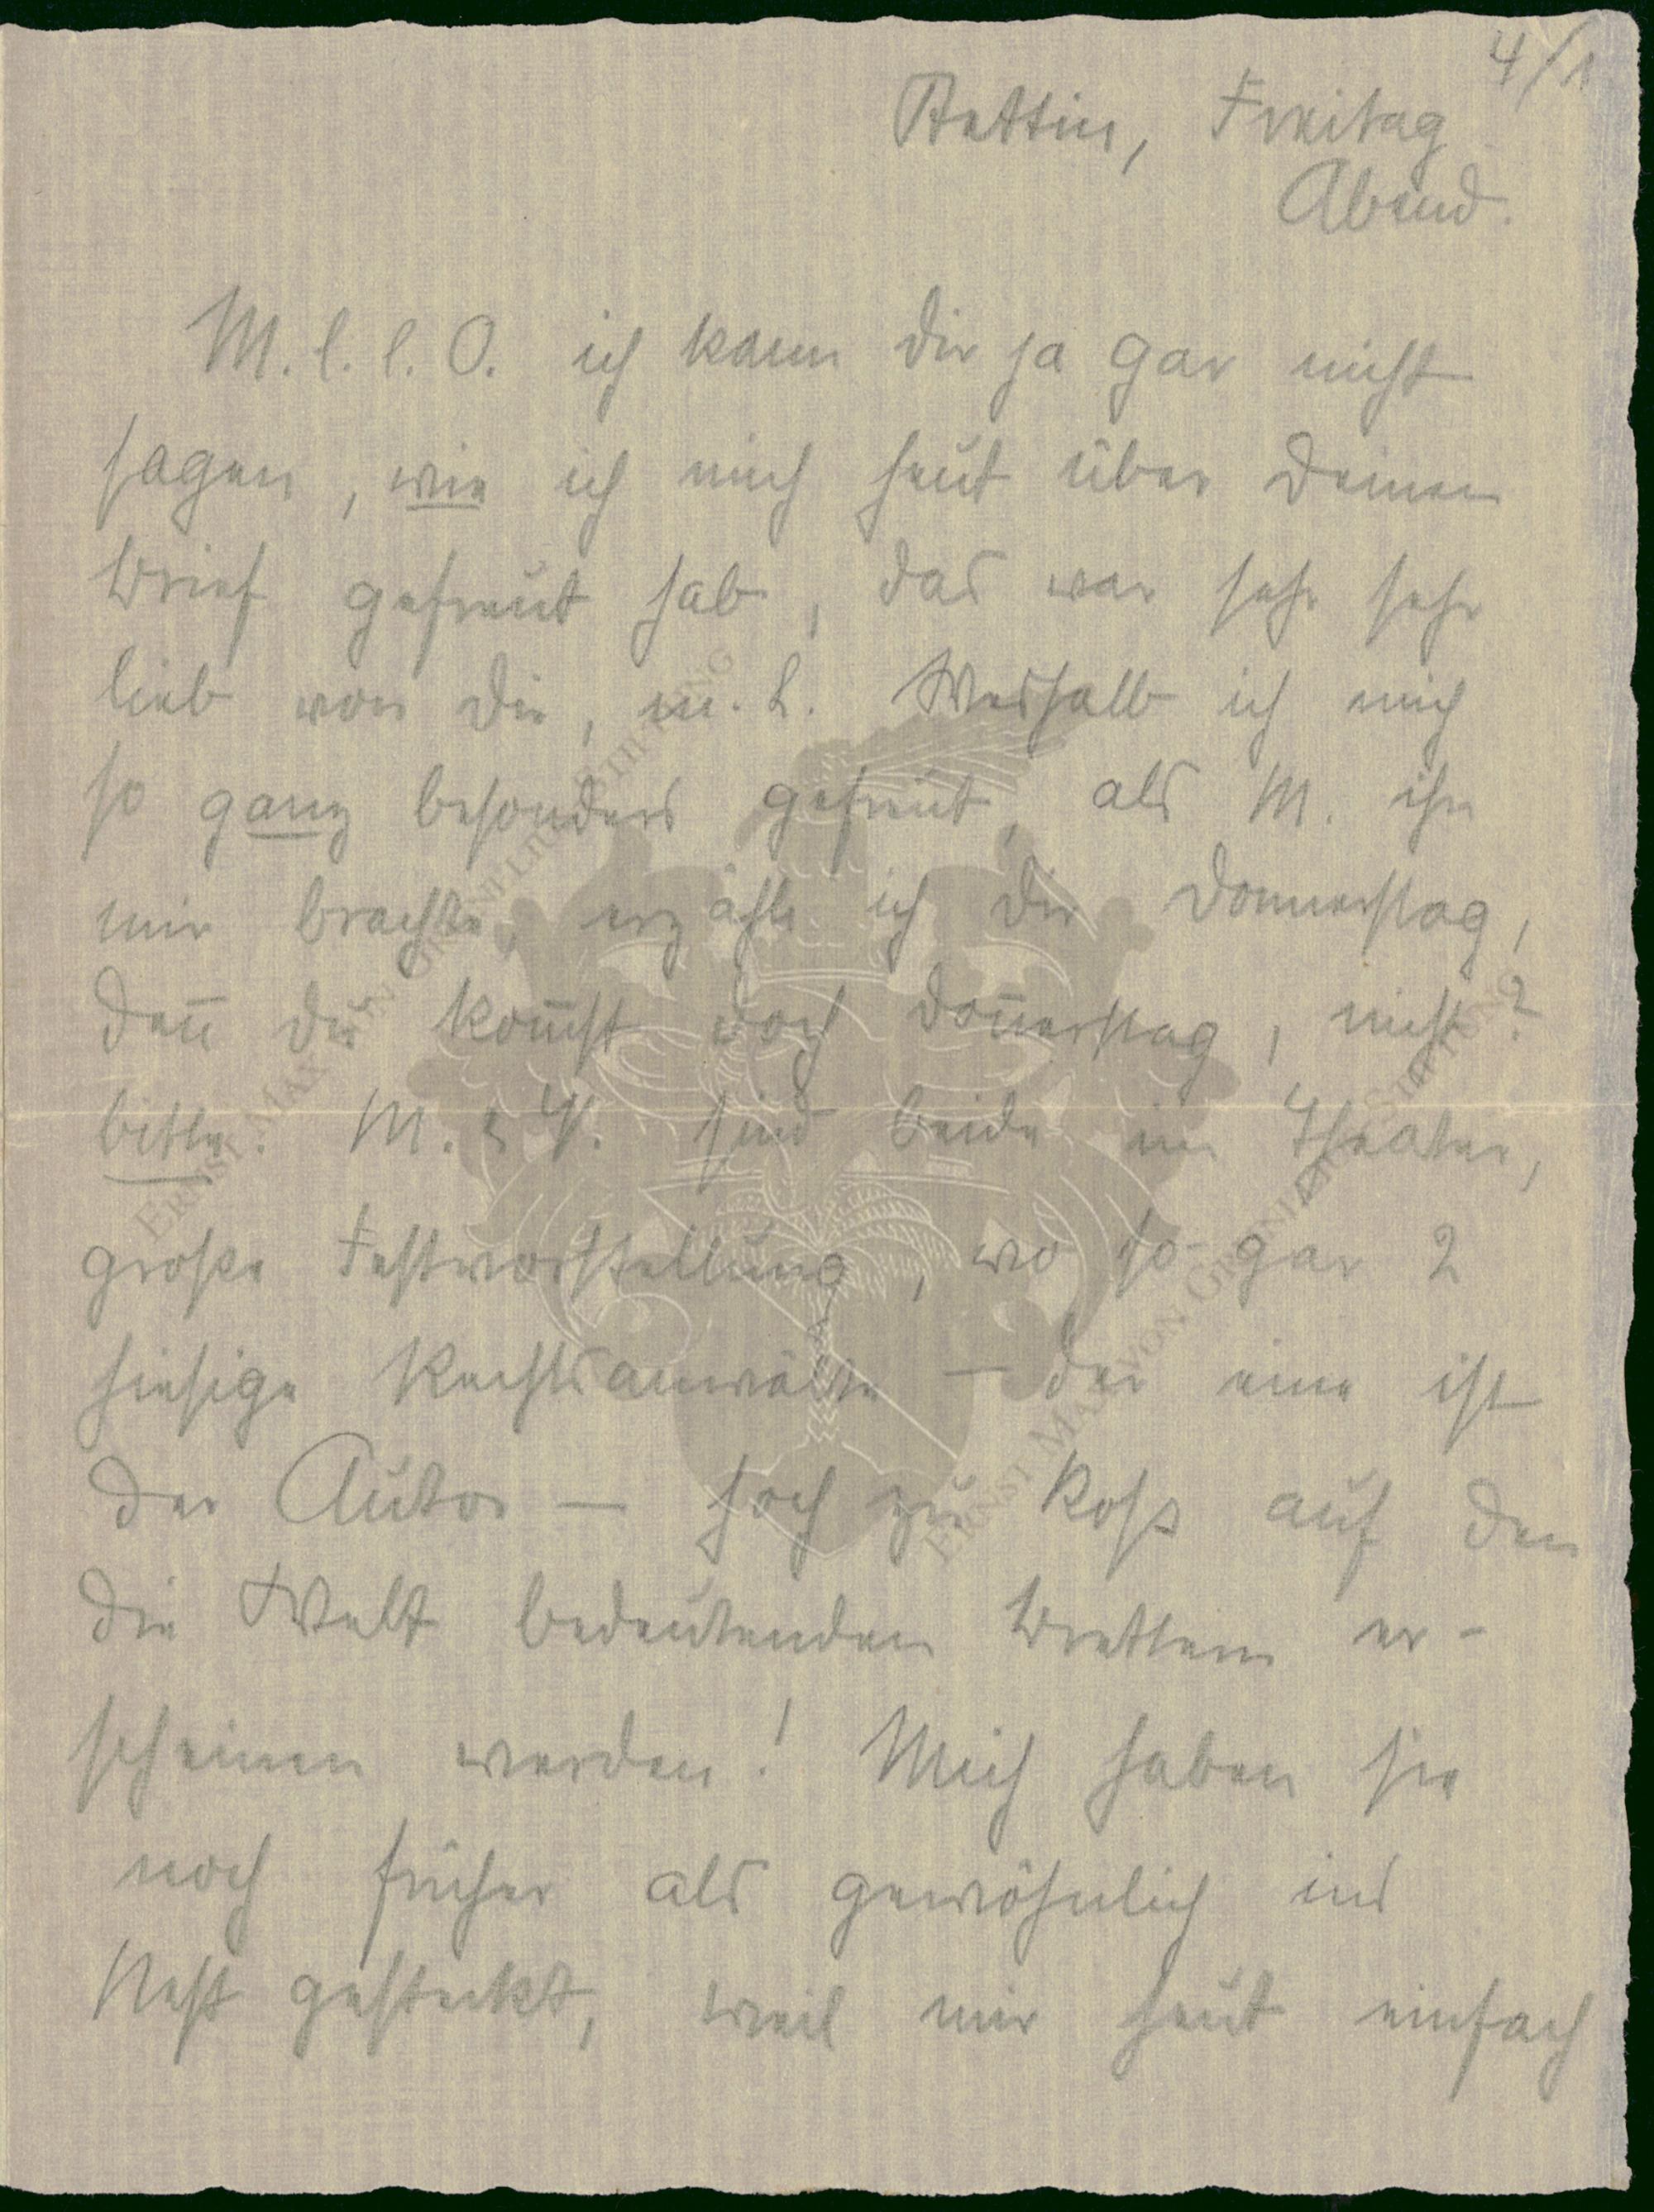 4/1
Stettin, Freitag
Abend.
M. l. l. O. ich kann dir ja gar nicht
sagen, wie ich mich heut über Deinen
Brief gefreut hab, das war sehr sehr
lieb von dir, m. L. Weshalb ich mich
so ganz besonders gefreut, als M. ihn
mir brachte, erzähle ich dir Donnerstag,
den̄ du kom̄st doch Don̄erstag, nicht?
bitte. M. & V. sind beide im Theater,
große Festvorstellung, wo so-gar 2
hiesige Rechtsanwälte – der eine ist
der Autor – hoch zu Roß auf den
die Welt bedeutenden Brettern er-
scheinen werden! Mich haben sie
noch früher als gewöhnlich ins
Nest gesteckt, weil mir heut einfach
ERNST MAX VON GRUNELIUS-STIFTUNG
ERNST MAX VON GRUNELIUS-STIFTUNG